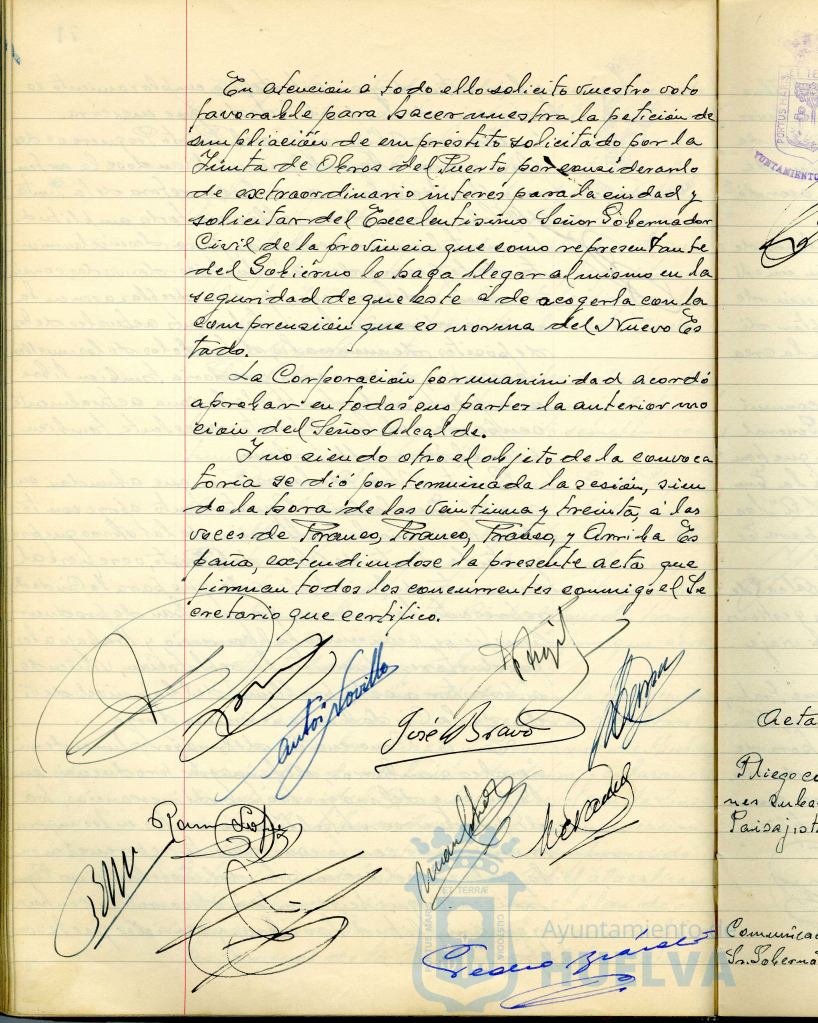 En atención á todo ello solicito vuestro voto
favorable para hacer nuestra la petición de
ampliación de empréstito solicitado por la
Junta de Obras del Puerto por considerarlo
de extraordinario interés para la ciudad y
solicitar del Excelentisimo Señor Gobernador
Civil de la provincia que como representante
del Gobierno lo haga llegar al mismo en la
seguridad de que este á de acogerla con la
comprensión que es norma del Nuevo Es
tado.
La Corporación por unanimidad acordó
aprobar en todas sus partes la anterior mo
cion del Señor Alcalde.
Y no siendo otro el objeto de la convoca
toria se dió por terminada la sesión, sien
do la hora de las veintiuna y treinta, á las
voces de Franco, Franco, Franco, y Arriba Es
paña, extendiendose la presente acta que
firman todos los concurrentes conmigo el Se
cretario que certifico.
Antº Novillo
José Bravo
Ayuntamiento de
HUELVA
PORTUS MARIS
ET TERRÆ
CUSTODIA
Pedro
PORTUS MARIS
YUNTAMIENTO
Acta
Pliego co
nes suba
Paisajist
Comunica
Sr. Goberna